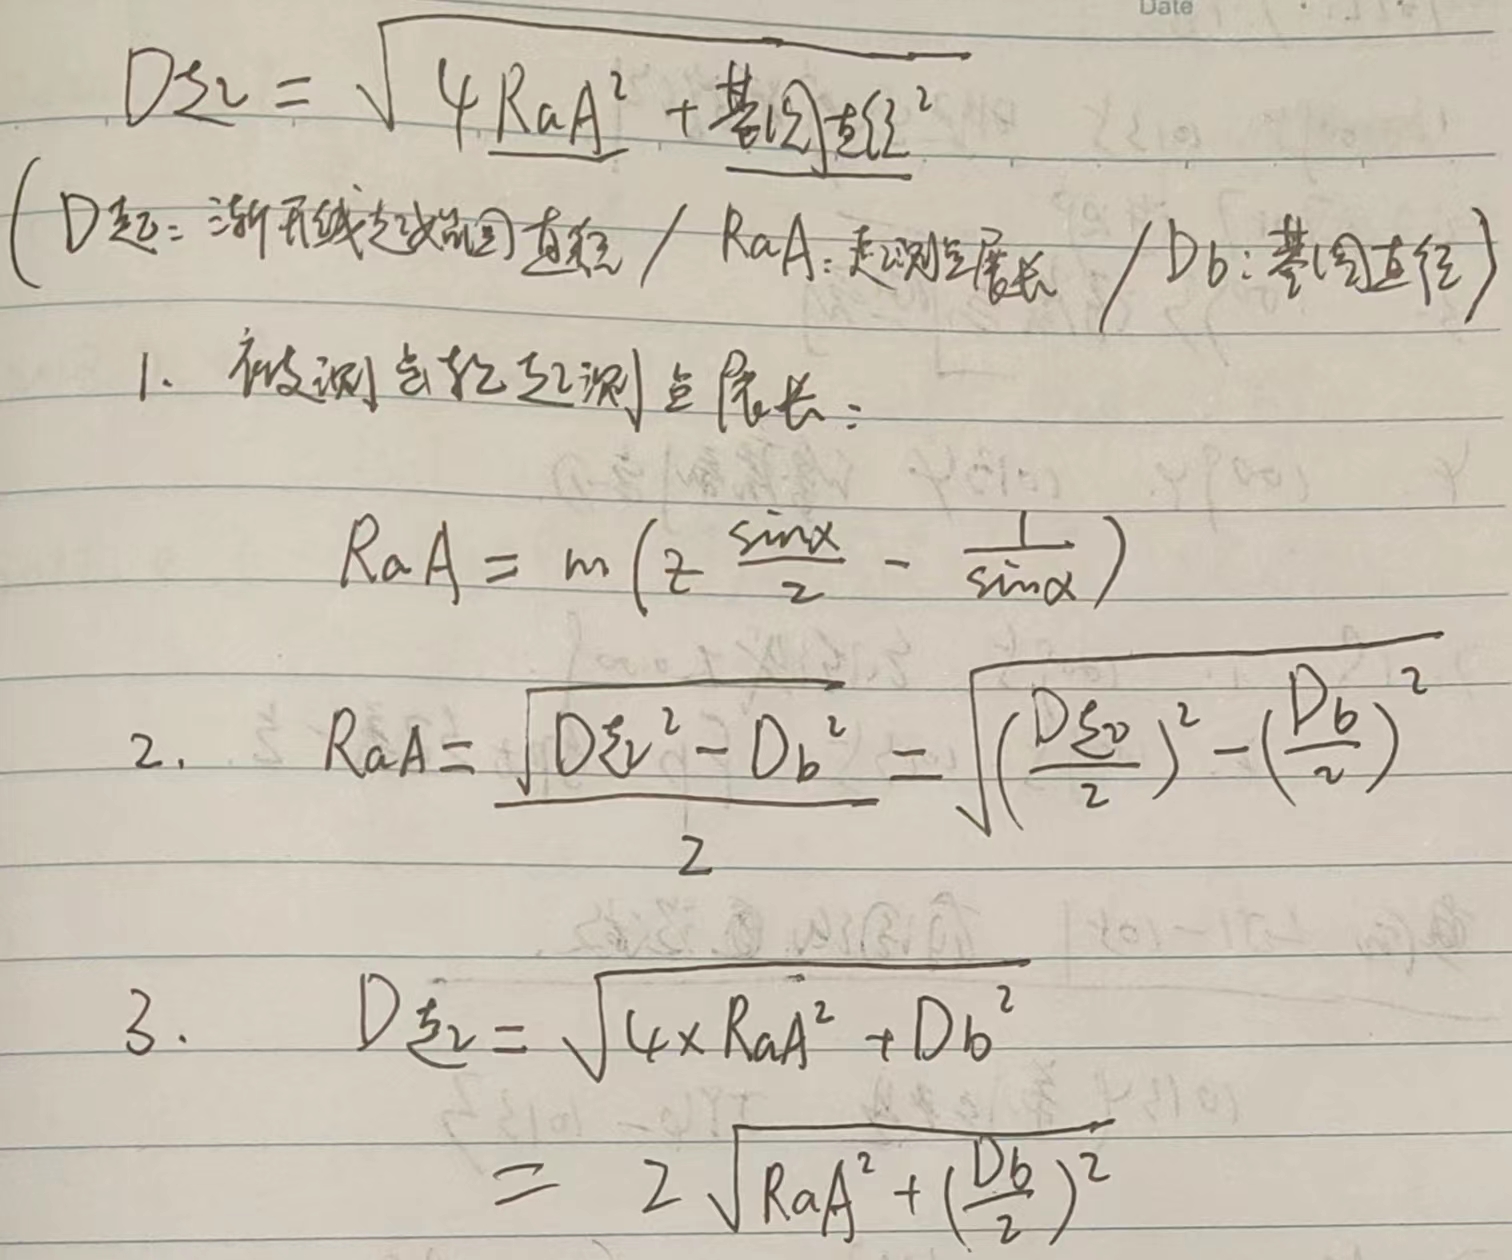 Date
D起 = √(4RaA² + 基圆直径²)
(D起: 渐开线起始圆直径 / RaA: 起测点展长 / Db: 基圆直径)
1. 被测齿轮起测点展长:
RaA = m(z sinα/2 - 1/sinα)
2. RaA = √(D起² - Db²)/2 = √((D起/2)² - (Db/2)²)
3. D起 = √(4×RaA² + Db²)
= 2√(RaA² + (Db/2)²)